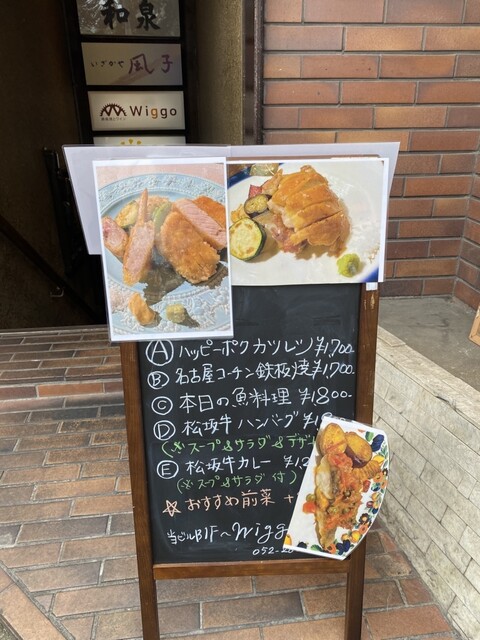 和泉
いざかや 凪子
Wiggo
Ⓐ ハッピーポクカツレツ ¥1,700-
Ⓑ 名古屋コーチン鉄板焼 ¥1,700-
Ⓒ 本日の魚料理 ¥1800-
Ⓓ 松坂牛ハンバーグ
(※スープ&サラダ&デザ
Ⓔ 松坂牛カレー
(※スープ&サラダ付)
☆おすすめ前菜 +
当ビルB1F〜Wigg
052-